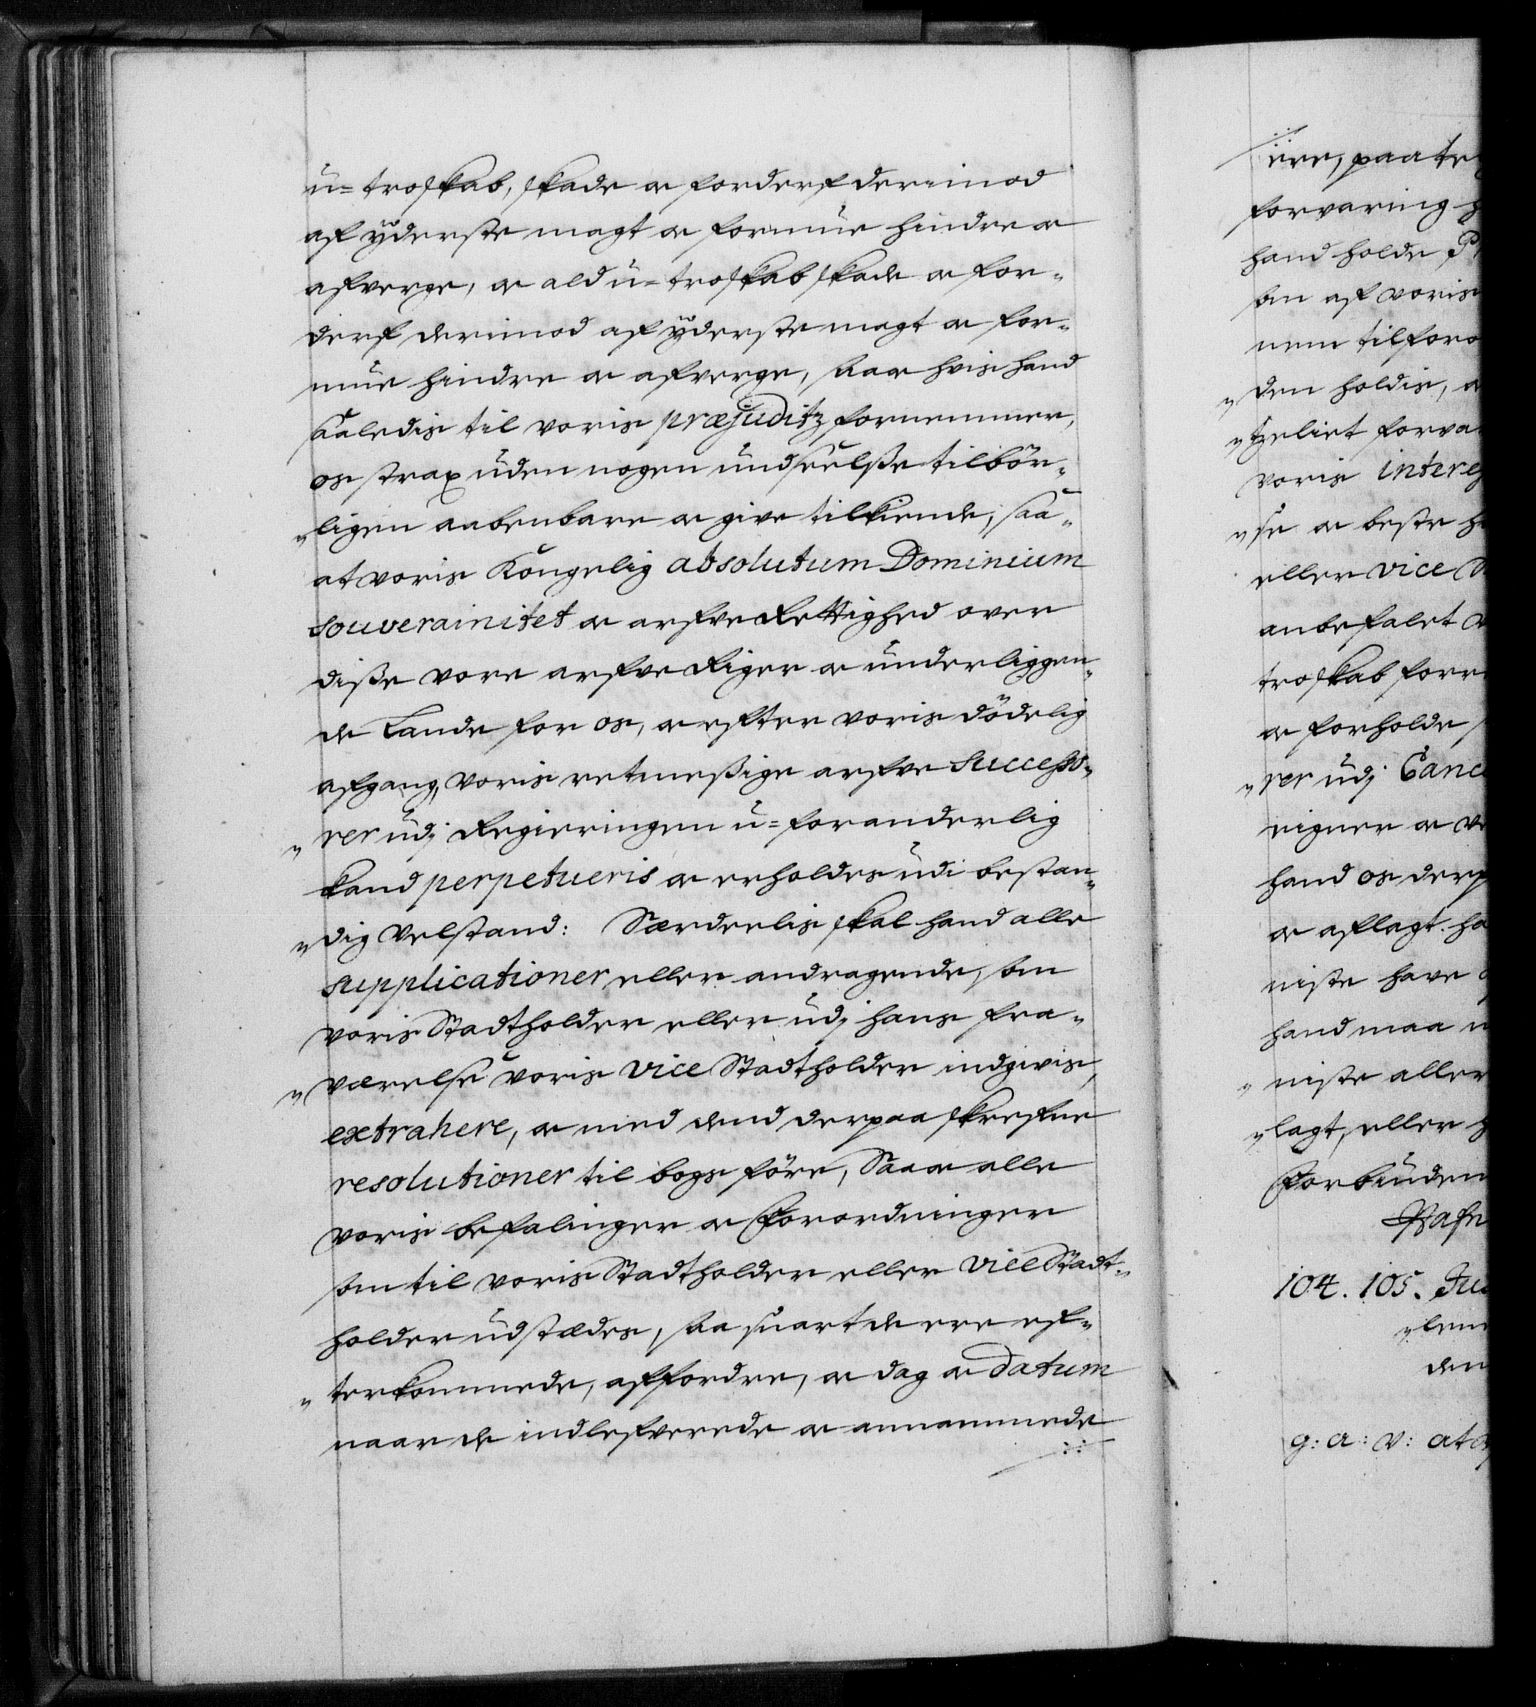 u-troskab, skade oc forderf derimod
af yderste magt oc formue hindre oc
afverge, oc ald u-troskab skade oc for-
derf derimod af yderste magt oc for-
mue hindre oc afverge, Saa oc hvis hand
saaledis til voris præjuditz fornemmer,
os strax uden nogen undseelsse tilbör-
"ligen aabenbare oc give tilkiende, saa-
at voris Kongelig absolutum Dominium
souverainitet oc arfve Rettighed over
disse vore arfve Riger oc underliggen-
de Lande for os, oc efter voris dödelig
afgang, voris retmessige arfve successo-
"rer udj Regieringen u-foranderlig
kand perpetueris oc erholdes udi bestan-
"dig Velstand: Særdeelis skal hand alle
supplicationer eller andragende, som
voris Stadtholder eller udj hans fra-
"værelse voris Vice Stadtholder indgivis,
extrahere, oc med dend derpaa skrefne
resolutioner til bogs före, Saa oc alle
voris befalinger oc Forordninger
som til voris Stadtholder eller Vice Stadt-
holder udstædes, saa snart de ere ef-
"terkommede, affordre, oc dag oc datum
naar de indlefverede oc annammede
ere, paate
forvaring h
hand holde P
som af voris
nem tilforo
"den holdis, o
"tzeliet forva
voris interes
"se oc beste h
eller Vice S
anbefalet
troskab forr
oc forholde
"rer udj Canc
eigner oc ve
hand os derp
oc aflagt. ha
niste have
hand maa
"niste aller
"lagt, eller h
Forbunden
Hafn
104. 105. Jus
"lem
den
g: a: v: at